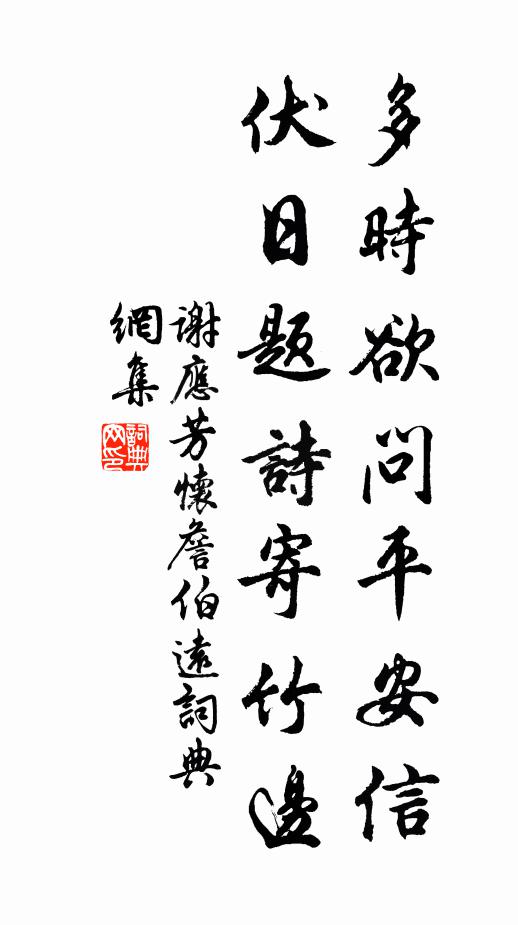 多時欲問平安信
伏日題詩寄竹邊
謝應芳懷詹伯遠詞典
網集
詞典網印